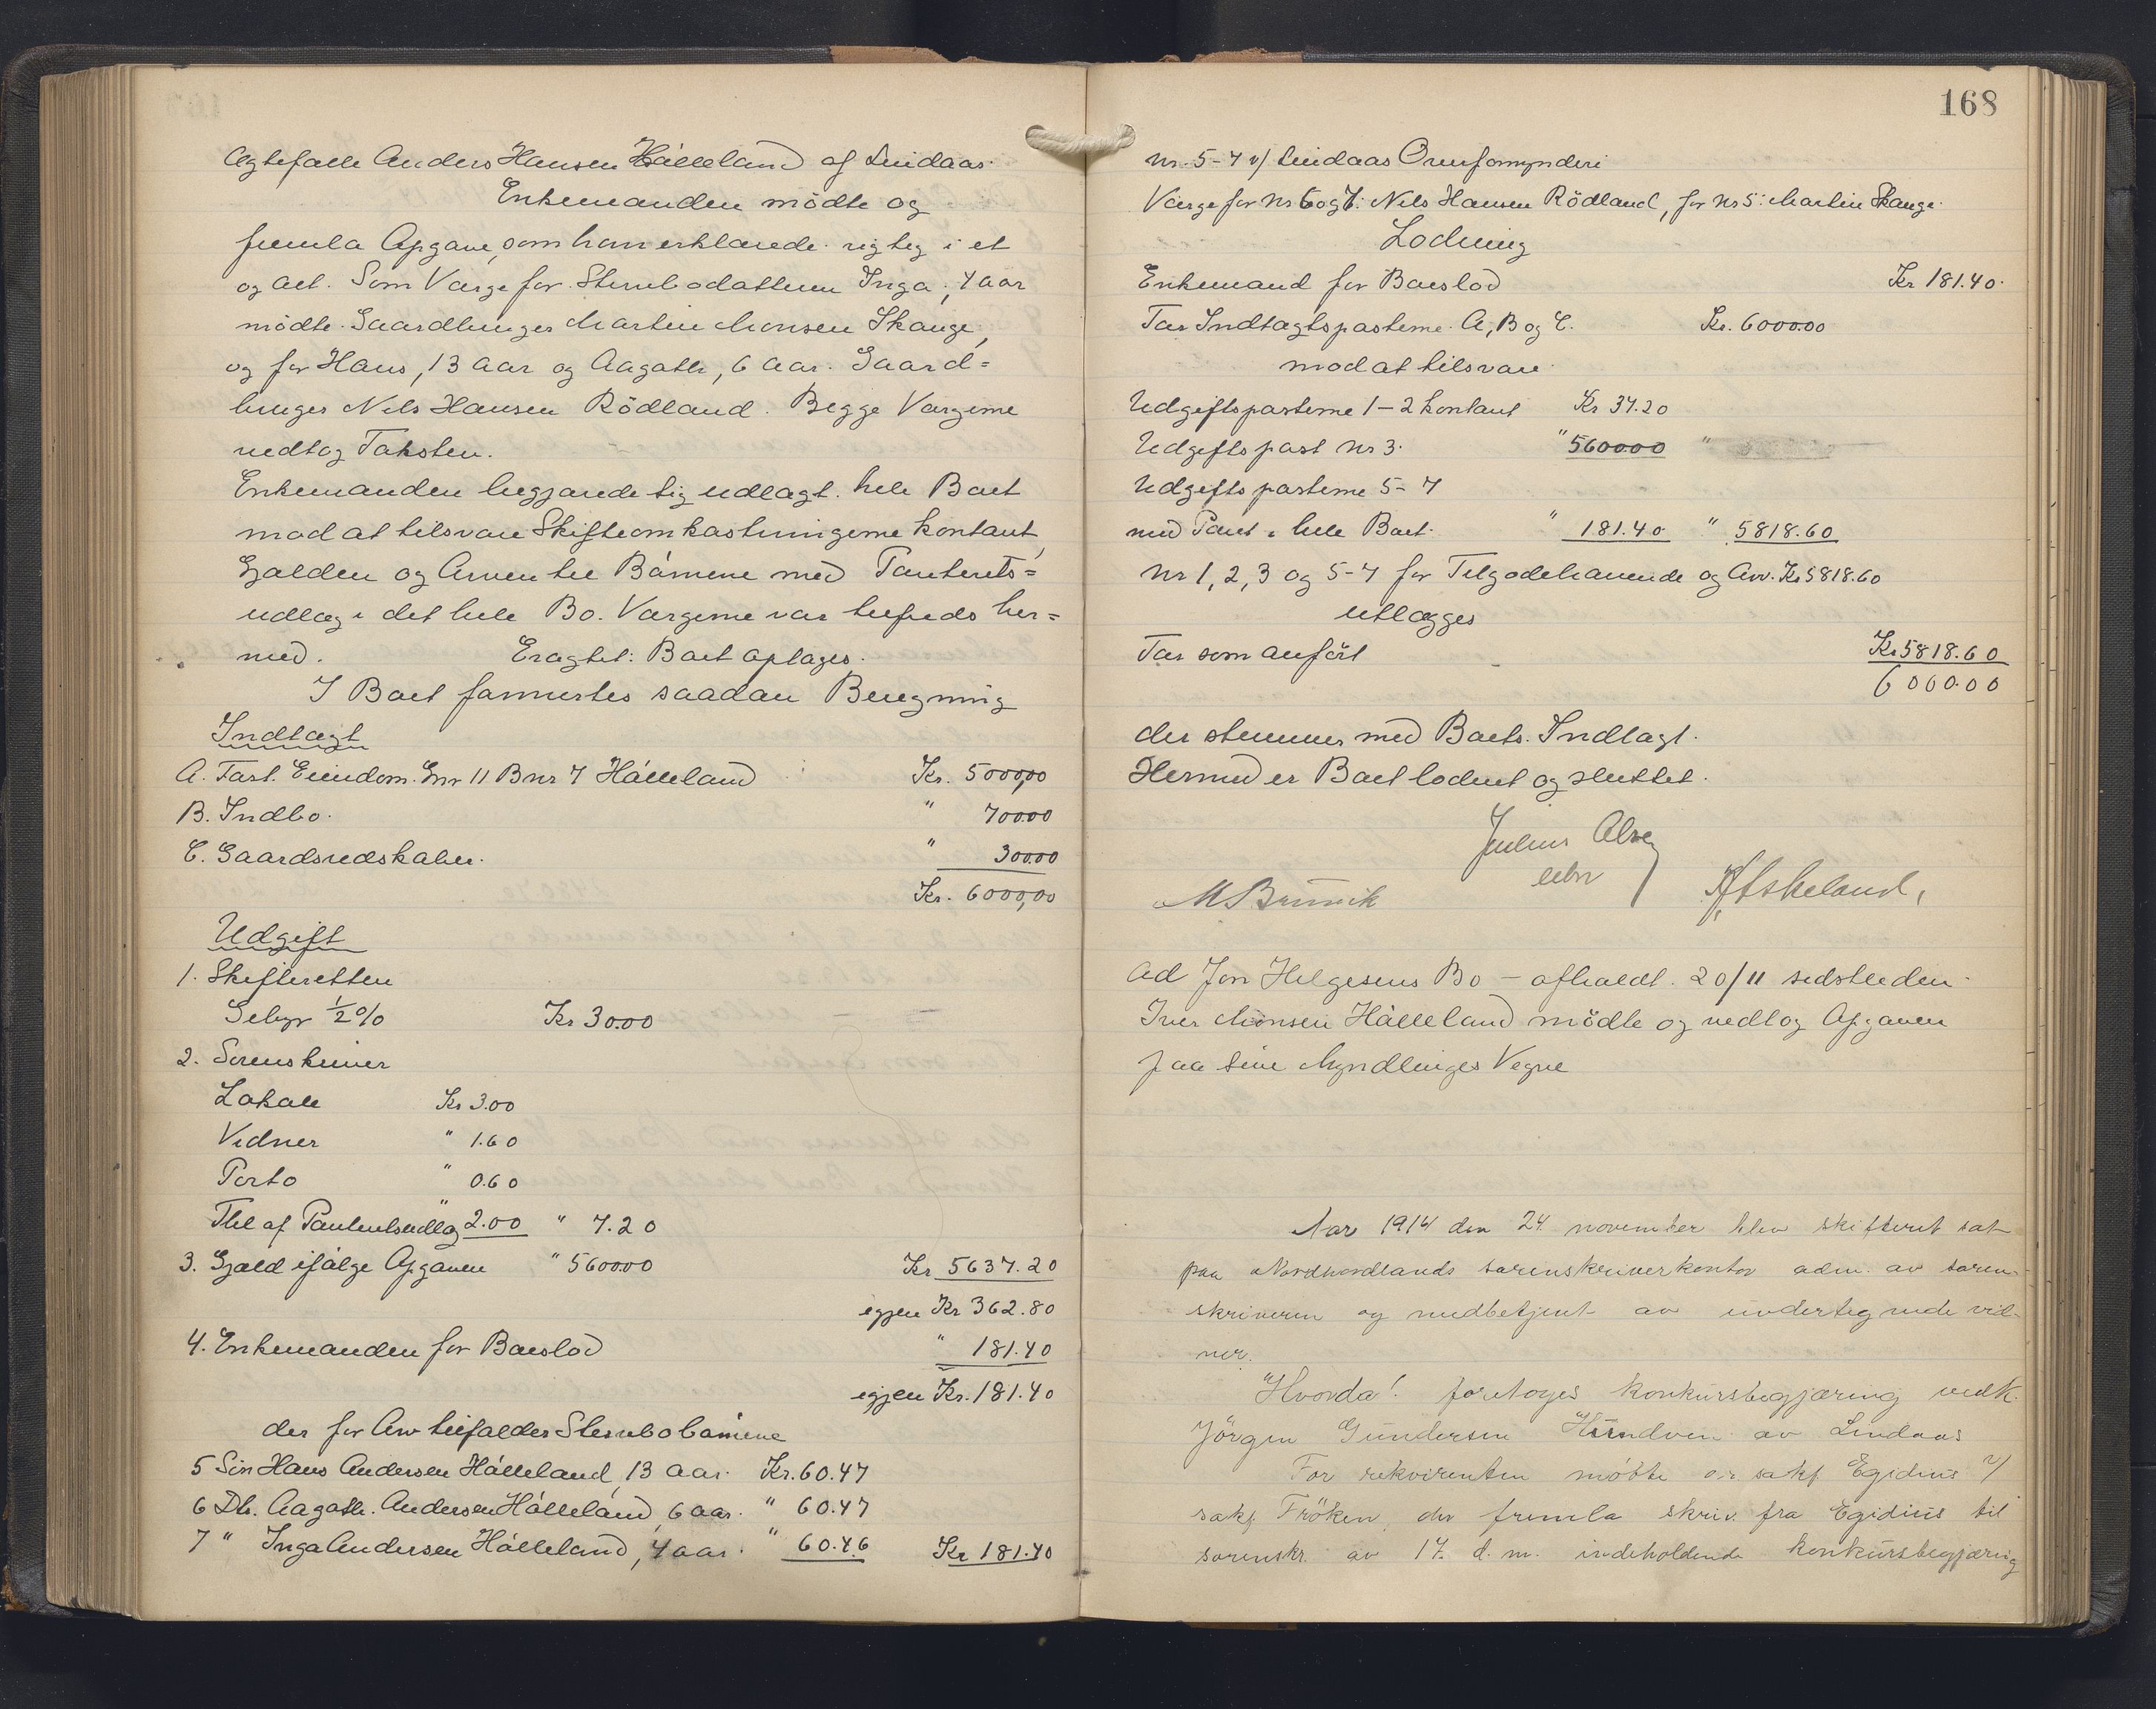 Ægtefælle Anders Hansen Hálleland af Lindaas.
Enkemanden mödte og
fremla Opgave, som han erklærede rigtig i et
og alt. Som Værge for Stervbodatteren Inga, 4 aar
mödte Gaardbruger Martin Monsen Skauge,
og for Hans, 13 aar og Aagathe, 6 aar. Gaard=
bruger Nils Hansen Rödland. Begge Værgerne
vedtog Taksten.
Enkemanden begjærede sig udlagt hele Boet
mod at tilsvare Skifteomkostningerne kontant,
Gjælden og Arven til Börnene med Panterets=
udlæg i det hele Bo. Værgerne var tilfreds her=
med. Eragtet: Boet optages.
I Boet formertes saadan Beregning
Indtægt
A. Fast Eiendom. Gnr 11 Bnr 7 Hálleland Kr. 5000,00
B. Indbo. " 700.00
C. Gaardsredskaber. " 300.00
Kr. 6000,00
Udgift
1. Skifteretten
Gebyr ½% Kr 30.00
2. Sorenskriver
Lokale Kr 3.00
Vidner " 1.60
Porto " 0.60
Thl af Panteretsudlæg " 2.00 " 7.20
3. Gjæld ifølge Opgaven " 5600.00 Kr 5637.20
egjen Kr 362.80
4. Enkemanden for Boeslod " 181.40
egjen Kr. 181.40
der for Arv tilfalder Stervbobörnene
5 Sön Hans Andersen Hálleland, 13 aar. Kr. 60.47
6 Dtr. Aagathe Andersen Hálleland, 6 aar. " 60.47
7 " Inga Andersen Hálleland, 4 aar. " 60.46 Kr 181.40
168
nr. 5-7 v/ Lindaas Overformynderi
Værge for Nr 6 og 7: Nils Hansen Rödland, for Nr 5: Martin Skauge.
Lodning
Enkemand for Boeslod Kr 181.40.
Tar Indtægtsposterne A, B og C. Kr. 6000.00
mod at tilsvare
Udgiftsposterne 1-2 kontant Kr 37.20
Udgiftspost nr 3. " 5600.00 "
Udgiftsposterne 5-7
med Pant i hele Boet. " 181.40 " 5818.60
Nr 1, 2, 3 og 5-7 for Tilgodehavende og Arv. Kr 5818.60
utlægges
Tar som anfört Kr 5818.60
6000.00
der stemmer med Boets Indtægt.
Hermed er Boet loddet og sluttet.
Julius Alve
M Brunvik
Ad Jon Helgesens Bo — afholdt 20/11 sidstleden.
Iver Monsen Hálleland mödte og vedtog Opgaven
paa sine Myndlinges Vegne
Aar 1914 den 24 november blev skifteret sat
paa Nordhordlands sorenskriverkontor adm. av soren-
skriveren og medbetjent av undertegnede vid-
ner.
Hvorda! foretoges konkursbegjæring vedk.
Jörgen Gundersen Hundven av Lindaas
For rekvirenten mötte o.r. sakf Egidius v/
sakf Fröken, der fremla skriv. fra Egidius til
sorenskr. av 17. d. m. indeholdende konkursbegjæring